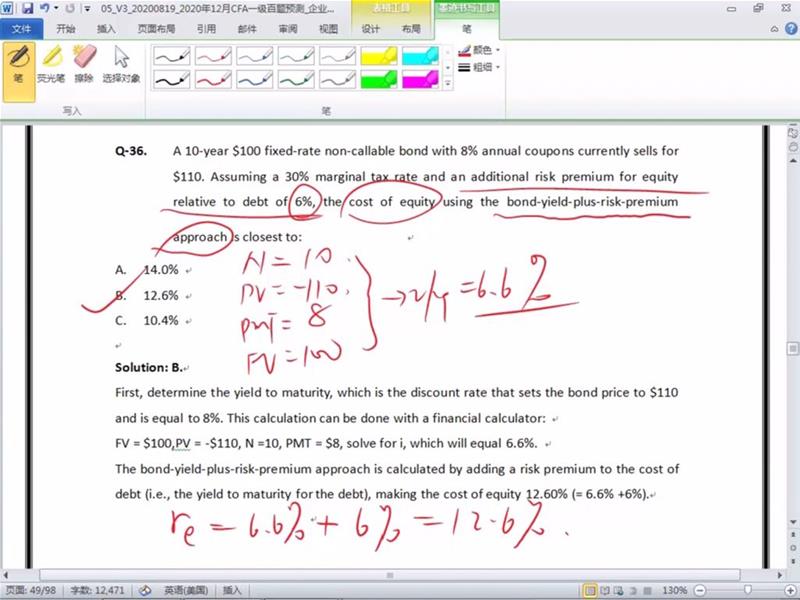 05_V3_20200819_2020年12月CFA一级百题预测_企业...
表格工具
墨迹书写工具
文件
开始
插入
页面布局
引用
CFA
邮件
审阅
视图
设计
布局
笔
笔
荧光笔
擦除
选择对象
颜色
粗细
写入
笔
Q-36. A 10-year $100 fixed-rate non-callable bond with 8% annual coupons currently sells for
$110. Assuming a 30% marginal tax rate and an additional risk premium for equity
relative to debt of 6%, the cost of equity using the bond-yield-plus-risk-premium
approach is closest to:
A. 14.0%
B. 12.6%
C. 10.4%
N = 10
PV = -110
PMT = 8
FV = 100
→ I/Y = 6.6%
Solution: B.
First, determine the yield to maturity, which is the discount rate that sets the bond price to $110
and is equal to 8%. This calculation can be done with a financial calculator:
FV = $100,PV = -$110, N =10, PMT = $8, solve for i, which will equal 6.6%.
The bond-yield-plus-risk-premium approach is calculated by adding a risk premium to the cost of
debt (i.e., the yield to maturity for the debt), making the cost of equity 12.60% (= 6.6% +6%).
re = 6.6% + 6% = 12.6%.
页面: 49/98
字数: 12,471
英语(美国)
插入
130%